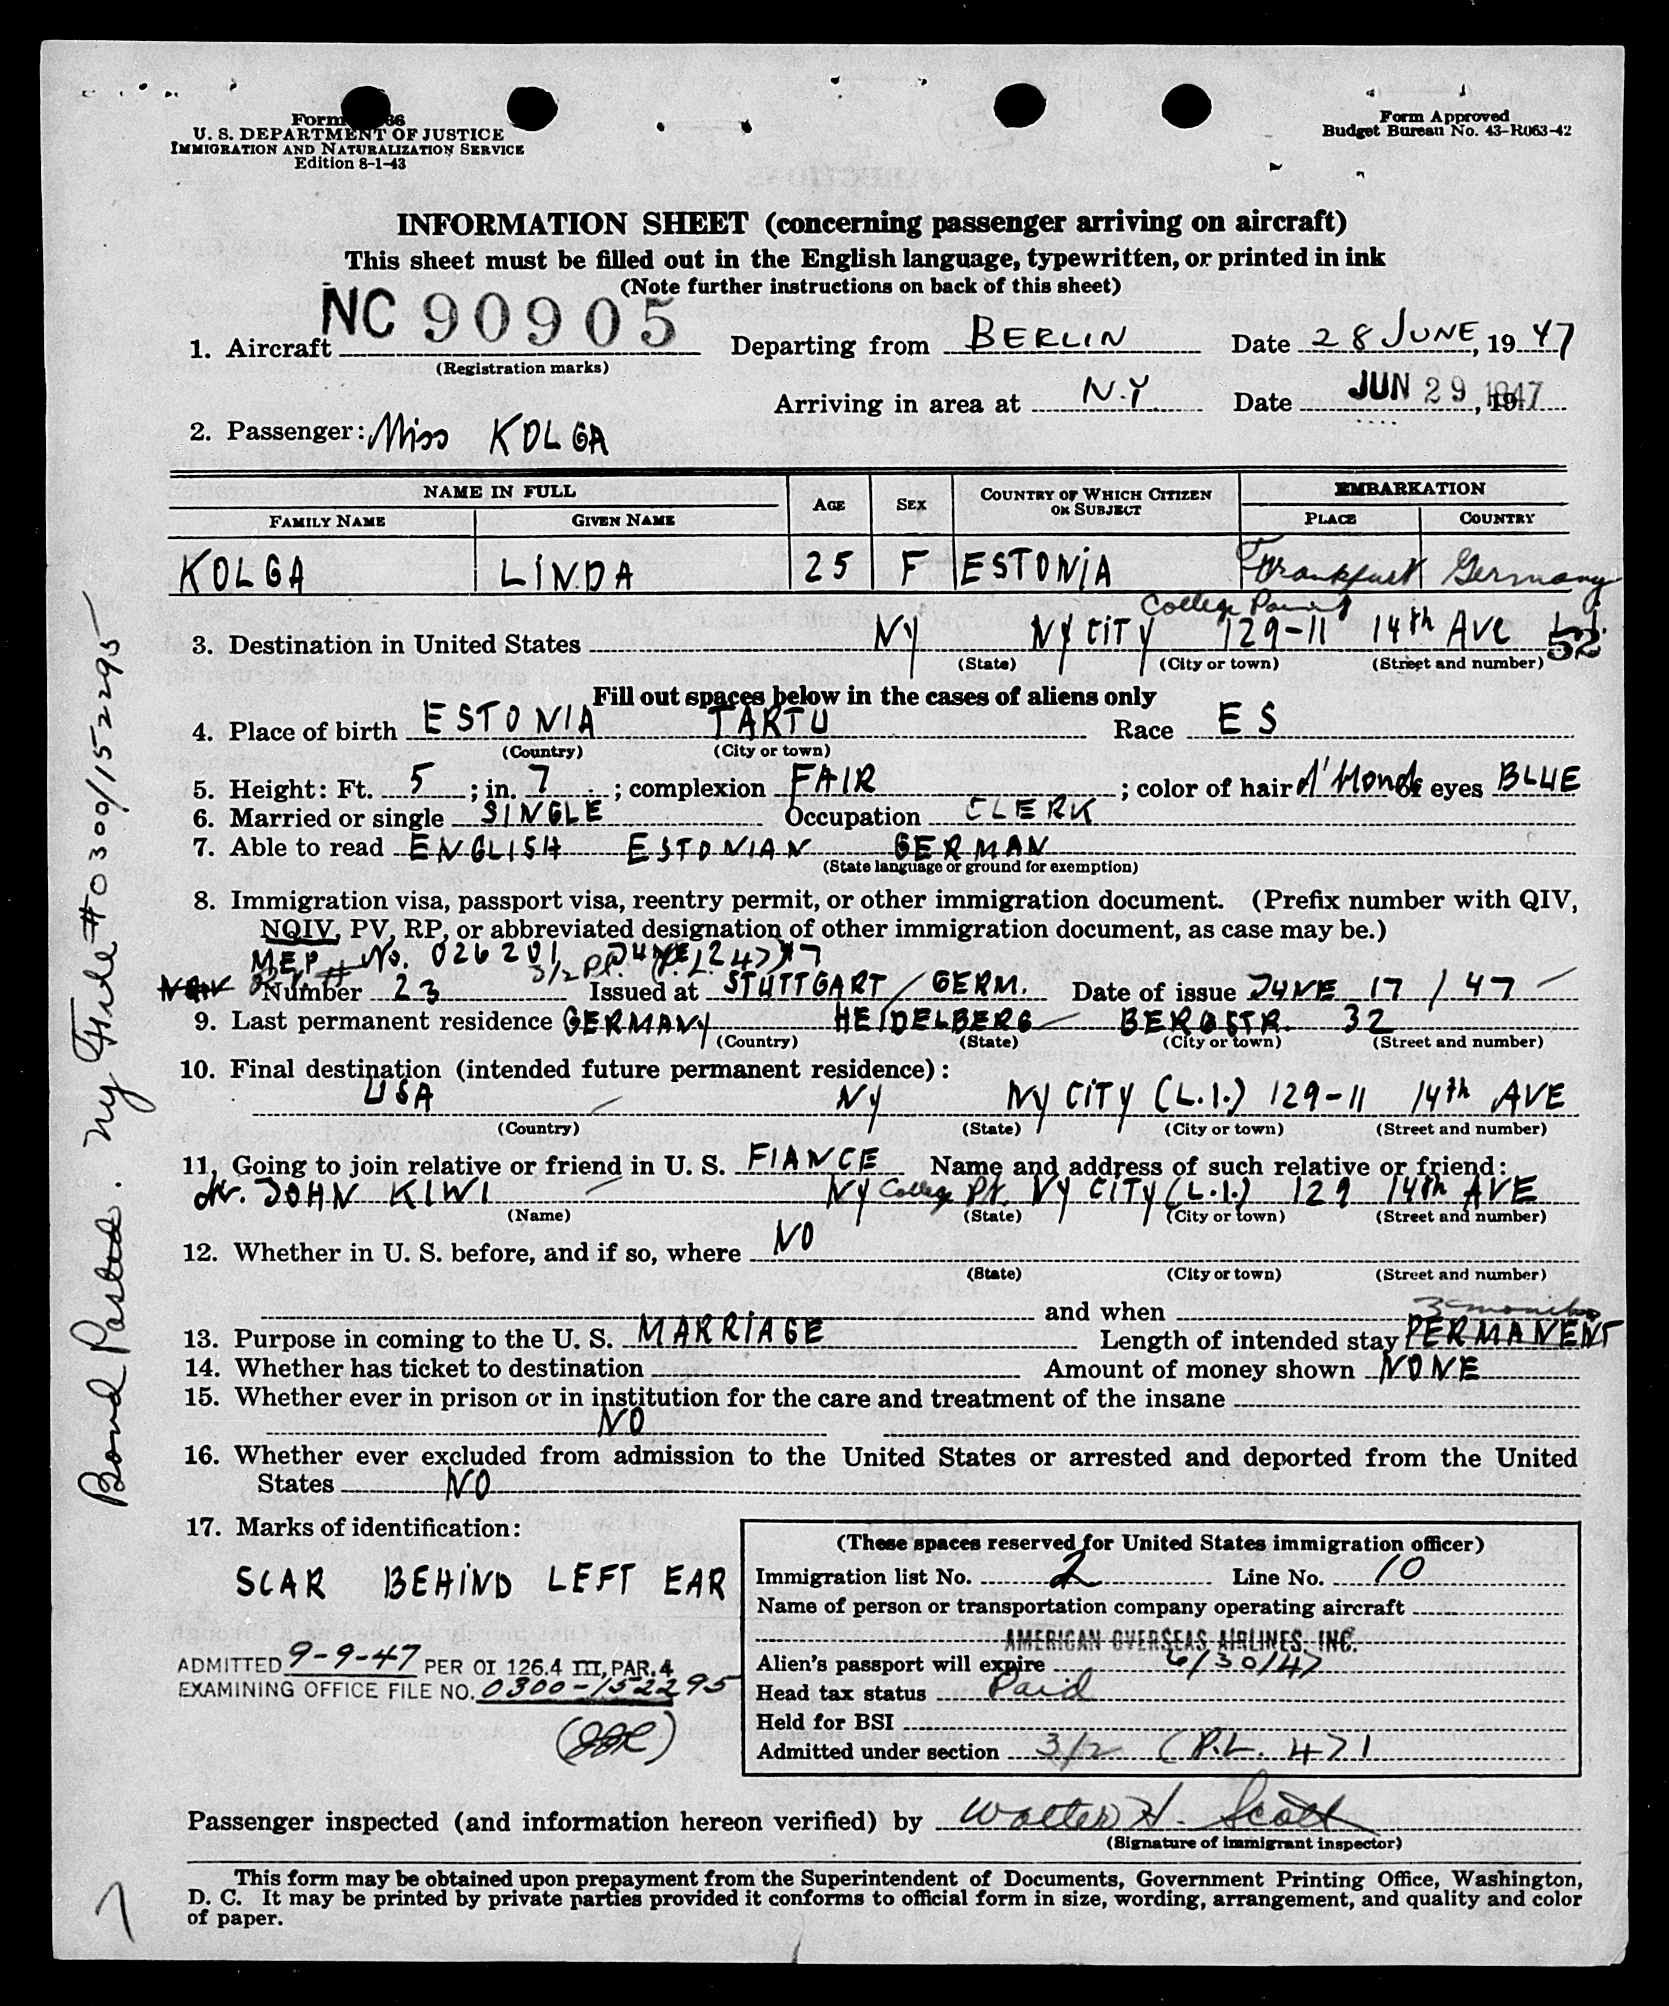 Form 66
U. S. DEPARTMENT OF JUSTICE
IMMIGRATION AND NATURALIZATION SERVICE
Edition 8-1-43
Form Approved
Budget Bureau No. 43-R063-42
INFORMATION SHEET (concerning passenger arriving on aircraft)
This sheet must be filled out in the English language, typewritten, or printed in ink
(Note further instructions on back of this sheet)
1. Aircraft NC 90905 Departing from BERLIN Date 28 JUNE, 1947
(Registration marks)
Arriving in area at N.Y. Date JUN 29 1947, 19
2. Passenger: Miss KOLGA
NAME IN FULL AGE SEX COUNTRY OF WHICH CITIZEN OR SUBJECT EMBARKATION
FAMILY NAME GIVEN NAME PLACE COUNTRY
KOLGA LINDA 25 F ESTONIA Frankfurt Germany
College Point
3. Destination in United States NY NY CITY 129-11 14th AVE L.I. 52
(State) (City or town) (Street and number)
Fill out spaces below in the cases of aliens only
4. Place of birth ESTONIA TARTU Race ES
(Country) (City or town)
5. Height: Ft. 5; in. 7; complexion FAIR; color of hair d'blonde eyes BLUE
6. Married or single SINGLE Occupation CLERK
7. Able to read ENGLISH ESTONIAN GERMAN
(State language or ground for exemption)
8. Immigration visa, passport visa, reentry permit, or other immigration document. (Prefix number with QIV,
NQIV, PV, RP, or abbreviated designation of other immigration document, as case may be.)
MEP No. 026201 JUNE 24/47
3/2 P.L. 471
Number 23 Issued at STUTTGART / GERM. Date of issue JUNE 17 / 47
9. Last permanent residence GERMANY HEIDELBERG BERGSTR. 32
(Country) (State) (City or town) (Street and number)
10. Final destination (intended future permanent residence):
USA NY NY CITY (L.I.) 129-11 14th AVE
(Country) (State) (City or town) (Street and number)
11. Going to join relative or friend in U. S. FIANCE Name and address of such relative or friend:
Mr. JOHN KIWI NY College Pt. NY CITY (L.I.) 129 14th AVE
(Name) (State) (City or town) (Street and number)
12. Whether in U. S. before, and if so, where NO
(State) (City or town) (Street and number)
and when
3 months
13. Purpose in coming to the U. S. MARRIAGE Length of intended stay PERMANENT
14. Whether has ticket to destination Amount of money shown NONE
15. Whether ever in prison or in institution for the care and treatment of the insane
NO
16. Whether ever excluded from admission to the United States or arrested and deported from the United
States NO
17. Marks of identification:
SCAR BEHIND LEFT EAR
ADMITTED 9-9-47 PER OI 126.4 III, PAR. 4
EXAMINING OFFICE FILE NO. 0300-152295
(These spaces reserved for United States immigration officer)
Immigration list No. 2 Line No. 10
Name of person or transportation company operating aircraft
AMERICAN OVERSEAS AIRLINES, INC.
Alien's passport will expire 6/30/47
Head tax status Paid
Held for BSI
Admitted under section 3/2 (P.L. 471
Passenger inspected (and information hereon verified) by Walter H. Scott
(Signature of immigrant inspector)
This form may be obtained upon prepayment from the Superintendent of Documents, Government Printing Office, Washington,
D. C. It may be printed by private parties provided it conforms to official form in size, wording, arrangement, and quality and color
of paper.
Bond Posted. NY File # 0300/152295